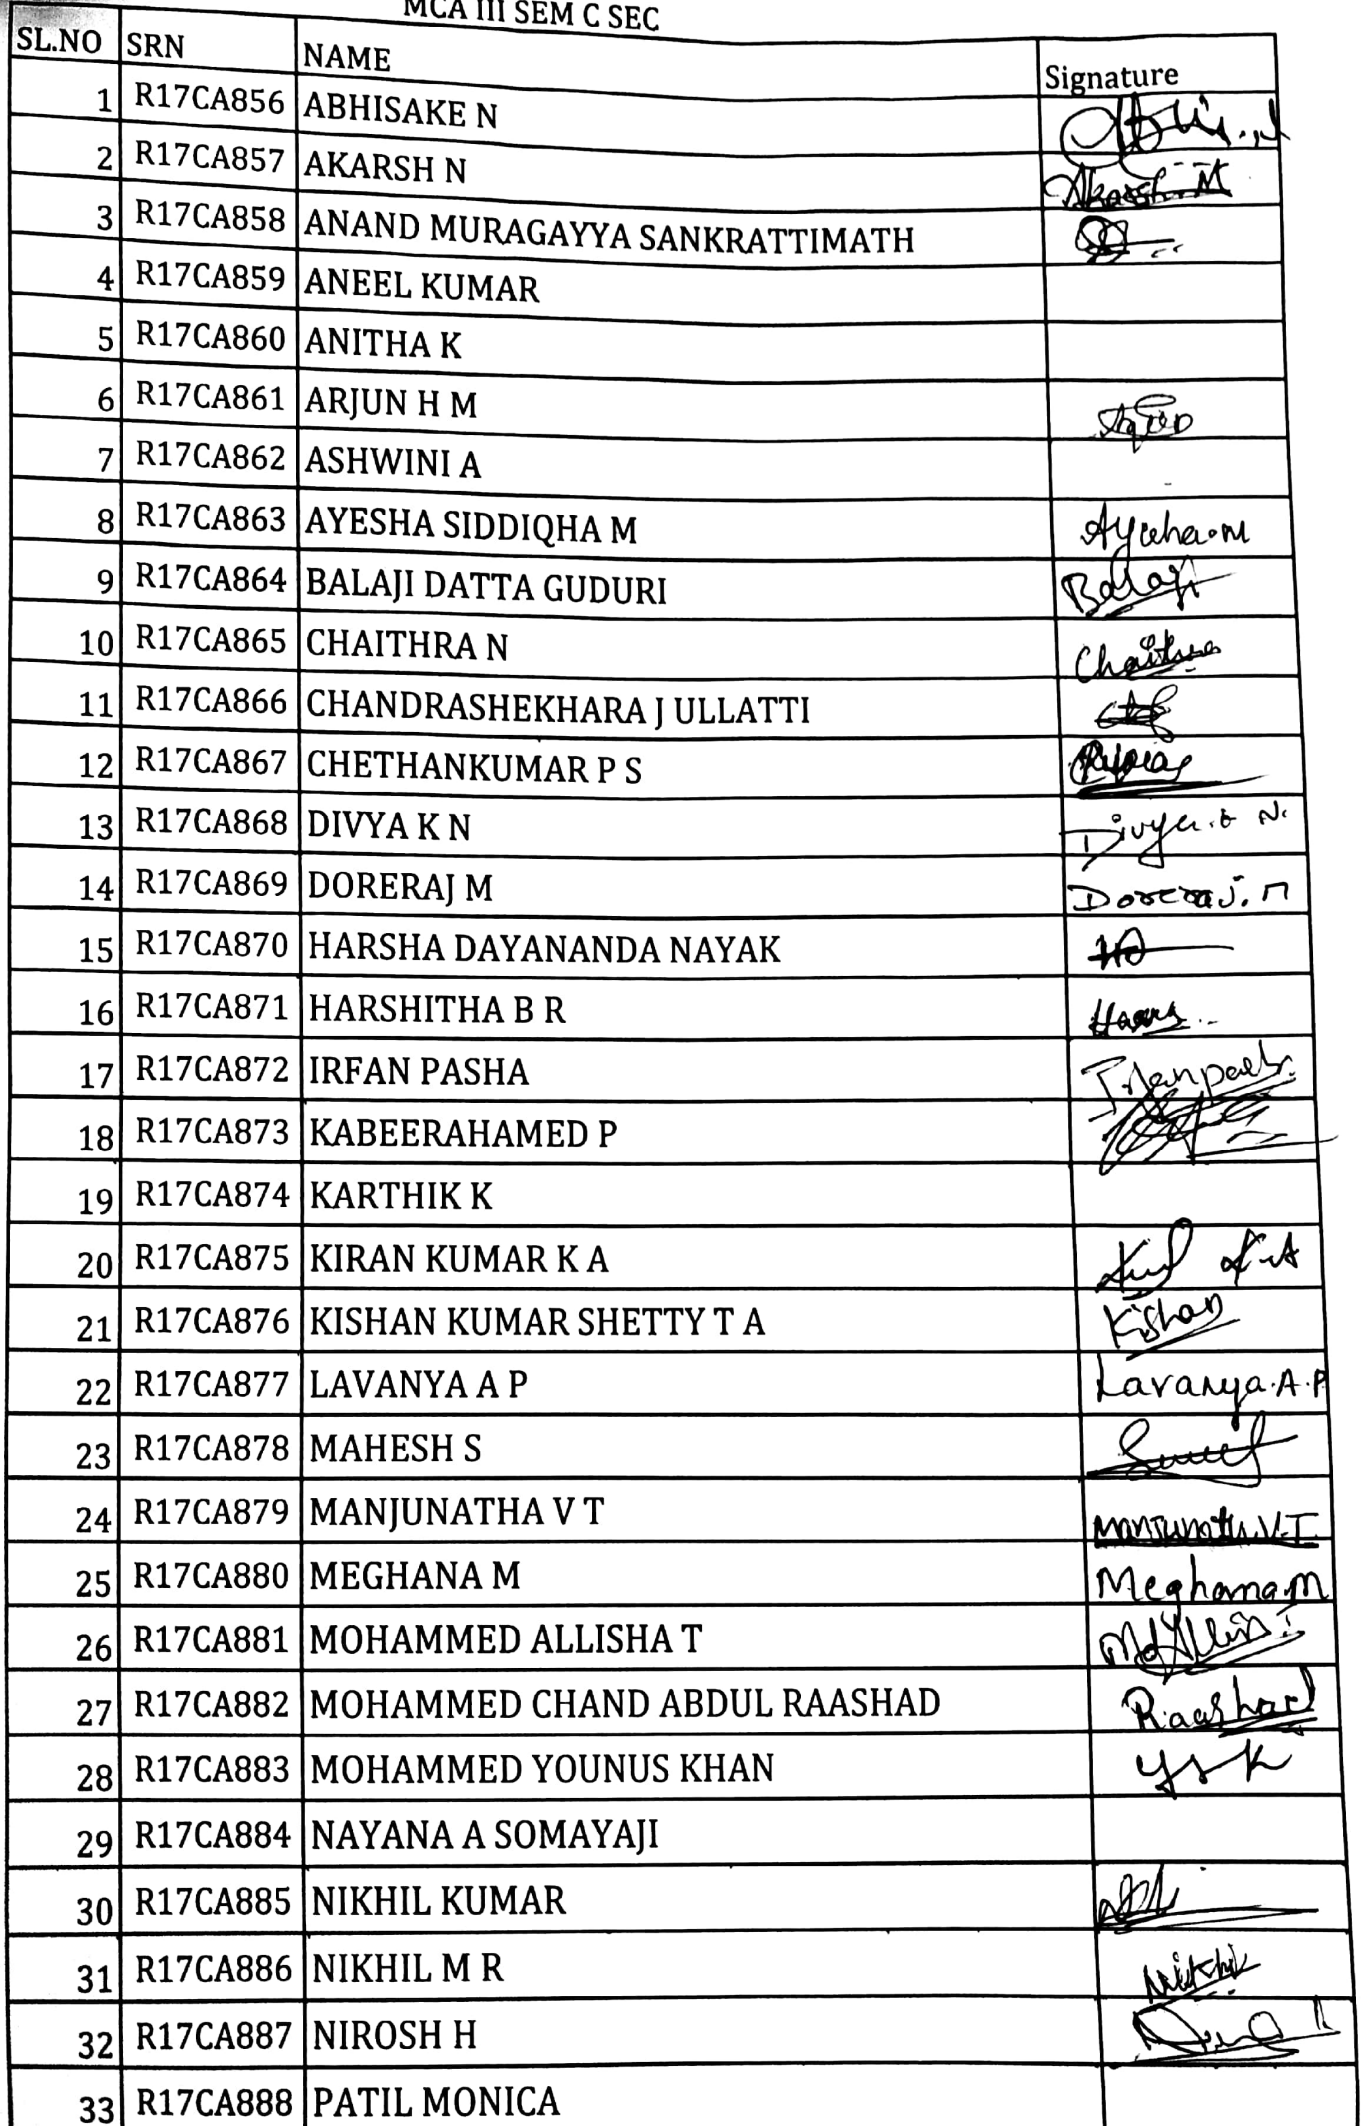 MCA III SEM C SEC
SL.NO SRN NAME Signature
1 R17CA856 ABHISAKE N
2 R17CA857 AKARSH N Akarsh.N
3 R17CA858 ANAND MURAGAYYA SANKRATTIMATH
4 R17CA859 ANEEL KUMAR
5 R17CA860 ANITHA K
6 R17CA861 ARJUN H M
7 R17CA862 ASHWINI A
8 R17CA863 AYESHA SIDDIQHA M Ayesha.M
9 R17CA864 BALAJI DATTA GUDURI Balaji
10 R17CA865 CHAITHRA N Chaithra
11 R17CA866 CHANDRASHEKHARA J ULLATTI
12 R17CA867 CHETHANKUMAR P S
13 R17CA868 DIVYA K N Divya.K N.
14 R17CA869 DORERAJ M Doreraj.M
15 R17CA870 HARSHA DAYANANDA NAYAK
16 R17CA871 HARSHITHA B R
17 R17CA872 IRFAN PASHA Irfanpasha
18 R17CA873 KABEERAHAMED P
19 R17CA874 KARTHIK K
20 R17CA875 KIRAN KUMAR K A
21 R17CA876 KISHAN KUMAR SHETTY T A Kishan
22 R17CA877 LAVANYA A P Lavanya.A.P
23 R17CA878 MAHESH S
24 R17CA879 MANJUNATHA V T Manjunatha.V.T
25 R17CA880 MEGHANA M Meghana M
26 R17CA881 MOHAMMED ALLISHA T
27 R17CA882 MOHAMMED CHAND ABDUL RAASHAD Raashad
28 R17CA883 MOHAMMED YOUNUS KHAN
29 R17CA884 NAYANA A SOMAYAJI
30 R17CA885 NIKHIL KUMAR
31 R17CA886 NIKHIL M R Nikhil
32 R17CA887 NIROSH H
33 R17CA888 PATIL MONICA